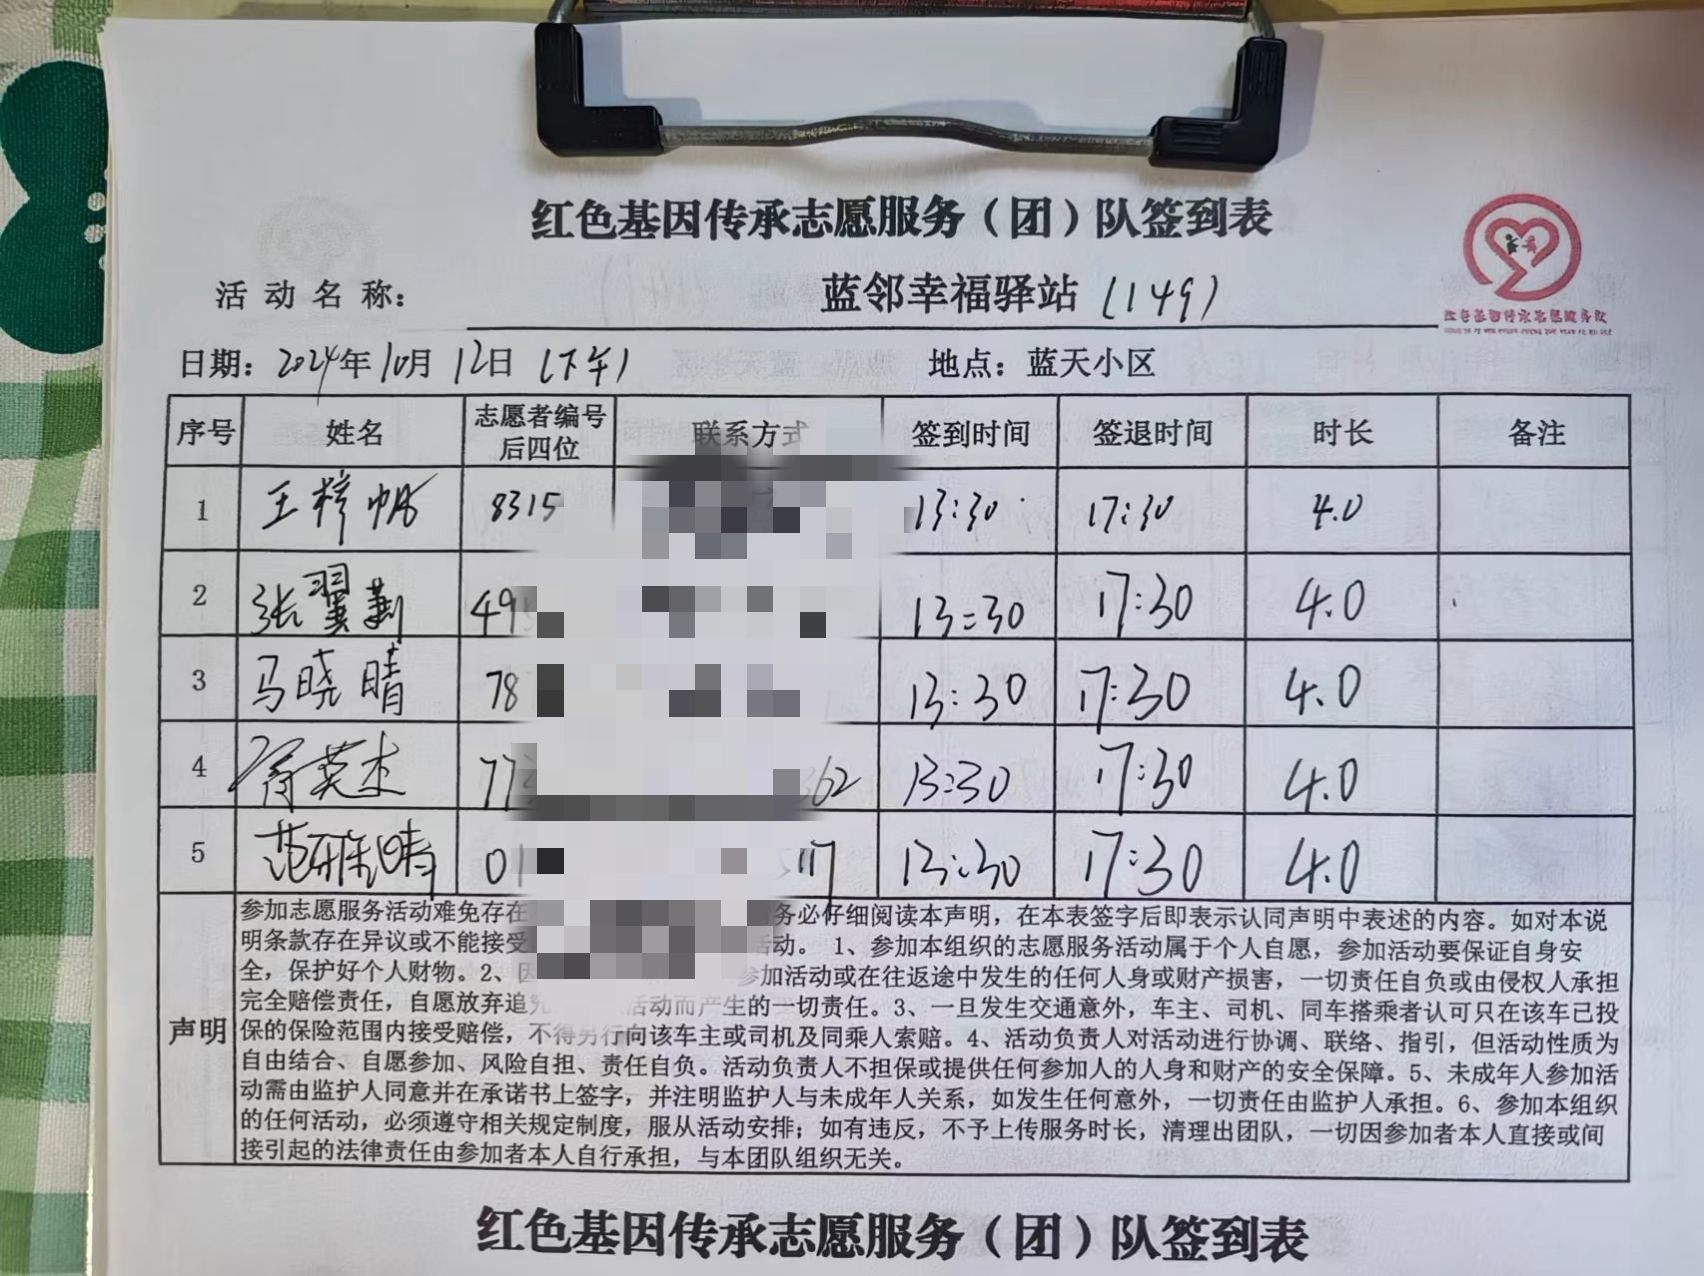 红色基因传承志愿服务（团）队签到表
活动名称： 蓝邻幸福驿站（149）
红色基因传承志愿服务队
日期：2024年10月12日（下午） 地点：蓝天小区
序号 姓名 志愿者编号后四位 联系方式 签到时间 签退时间 时长 备注
1 王梓帆 8315 13:30 17:30 4.0
2 张翼 49 13:30 17:30 4.0
3 马晓晴 78 13:30 17:30 4.0
4 英杰 77 362 13:30 17:30 4.0
5 范雅晴 01 117 13:30 17:30 4.0
声明
参加志愿服务活动难免存在 务必仔细阅读本声明，在本表签字后即表示认同声明中表述的内容。如对本说
明条款存在异议或不能接受 活动。 1、参加本组织的志愿服务活动属于个人自愿，参加活动要保证自身安
全，保护好个人财物。2、因 参加活动或在往返途中发生的任何人身或财产损害，一切责任自负或由侵权人承担
完全赔偿责任，自愿放弃追究 活动而产生的一切责任。3、一旦发生交通意外，车主、司机、同车搭乘者认可只在该车已投
保的保险范围内接受赔偿，不得另行向该车主或司机及同乘人索赔。4、活动负责人对活动进行协调、联络、指引，但活动性质为
自由结合、自愿参加、风险自担、责任自负。活动负责人不担保或提供任何参加人的人身和财产的安全保障。5、未成年人参加活
动需由监护人同意并在承诺书上签字，并注明监护人与未成年人关系，如发生任何意外，一切责任由监护人承担。6、参加本组织
的任何活动，必须遵守相关规定制度，服从活动安排；如有违反，不予上传服务时长，清理出团队，一切因参加者本人直接或间
接引起的法律责任由参加者本人自行承担，与本团队组织无关。
红色基因传承志愿服务（团）队签到表